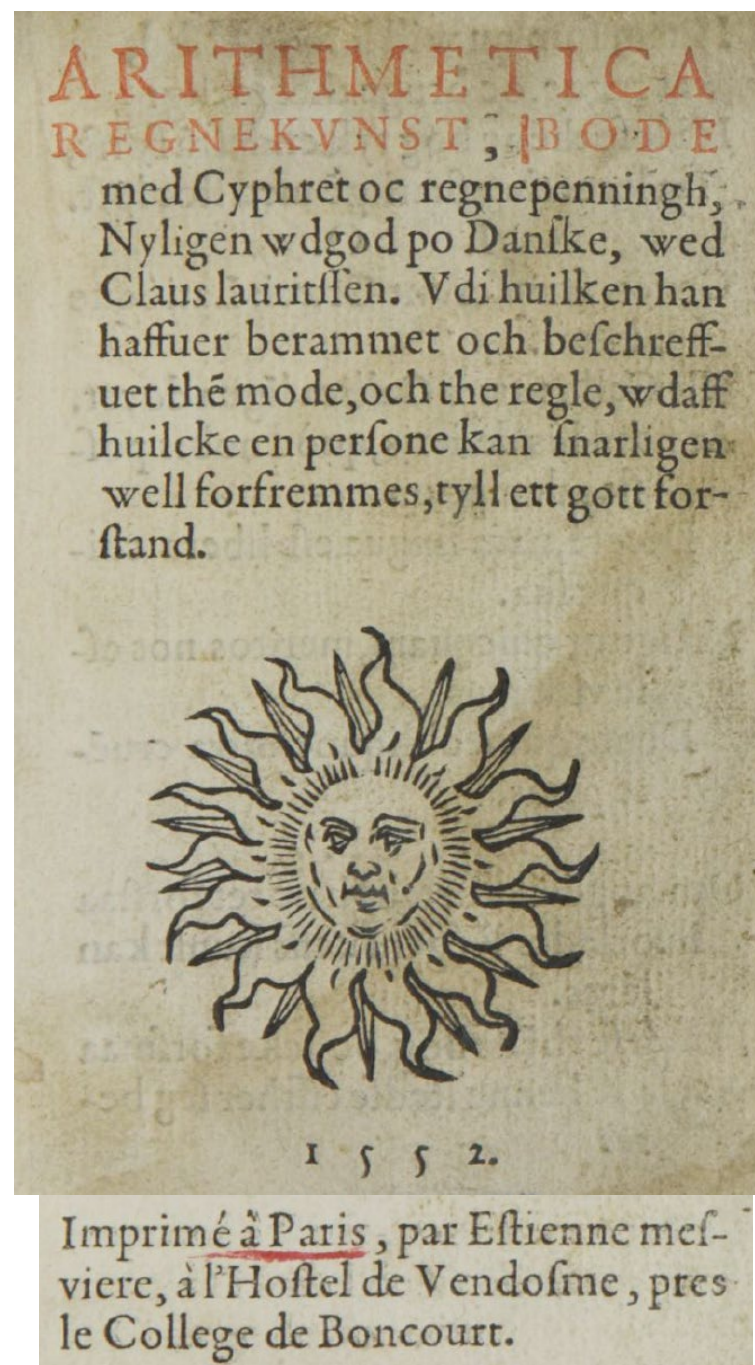 ARITHMETICA
REGNEKVNST, BODE
med Cyphret oc regnepenningh,
Nyligen wdgod po Danſke, wed
Claus lauritſſen. Vdi huilken han
haffuer berammet och beſchreff-
uet thē mode, och the regle, wdaff
huilcke en perſone kan ſnarligen
well forfremmes, tyll ett gott for-
ſtand.
1552.
Imprimé à Paris, par Eſtienne meſ-
viere, à l'Hoſtel de Vendoſme, pres
le College de Boncourt.